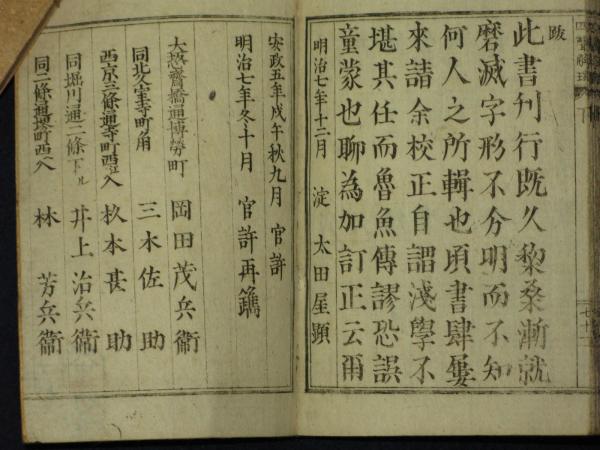 跋
此書刊行既久黎桑漸就
磨滅字形不分明而不知
何人之所輯也頃書肆屢
來請余校正自謂淺學不
堪其任而魯魚傳謬恐誤
童蒙也聊為加訂正云爾
明治七年十二月 淀 太田星顕
安政五年戊午秋九月 官許
明治七年冬十月 官許再鐫
大坂心齋橋通博勞町 岡田茂兵衞
同北久宝寺町角 三木佐助
西京三條通寺町西入 杦本甚助
同堀川通二條下ル 井上治兵衞
同二條通堺町西入 林芳兵衞